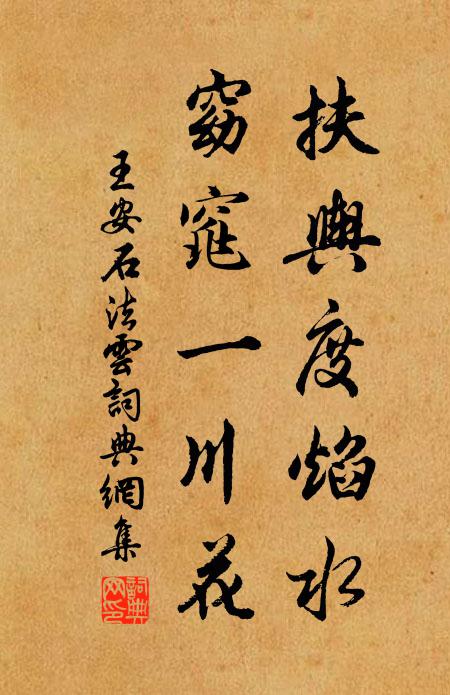 扶輿度焰水
窈窕一川花
王安石法雲詞典網集
詞典網印